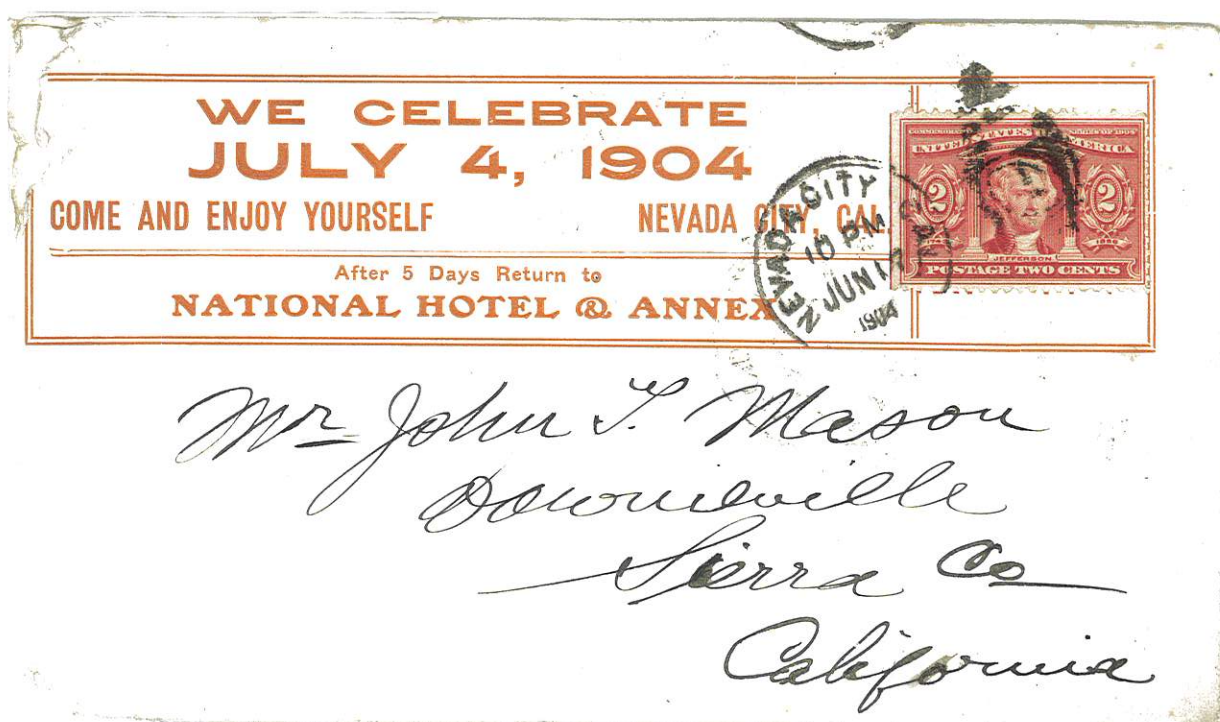 WE CELEBRATE
JULY 4, 1904
COME AND ENJOY YOURSELF NEVADA CITY, CAL.
After 5 Days Return to
NATIONAL HOTEL & ANNEX
NEVADA CITY
10 PM
JUN 17
1904
COMMEMORATIVE SERIES OF 1904
UNITED STATES OF AMERICA
2 2
JEFFERSON
POSTAGE TWO CENTS
Mr John T. Mason
Downieville
Sierra Co
California